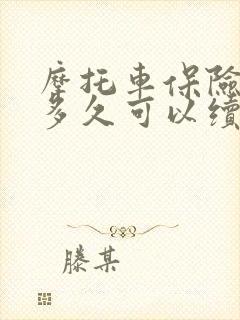 摩托車保險
多久可以續
滕某